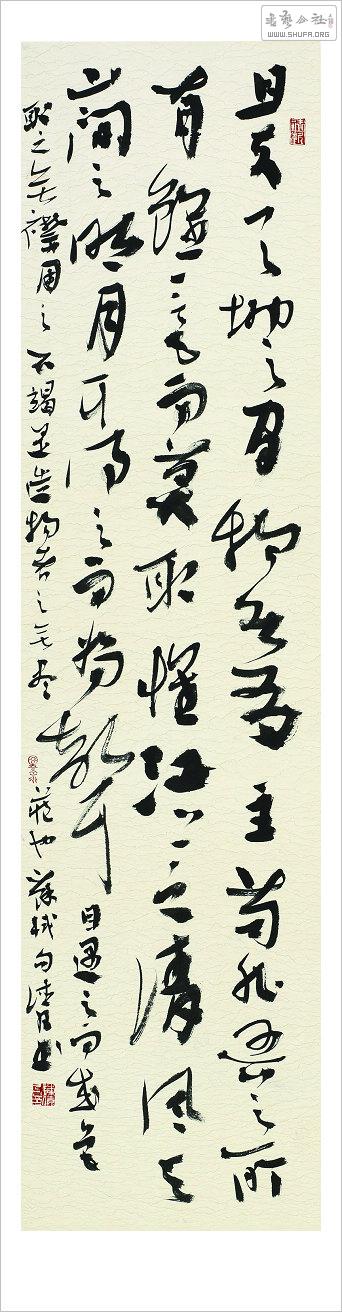 書藝公社
WWW.SHUFA.ORG
且夫天地之間物各有主苟非吾之所
有雖一毫而莫取惟江上之清風与
山間之明月耳得之而為聲目遇之而成色
取之無禁用之不竭是造物者之無盡藏也蘇軾句